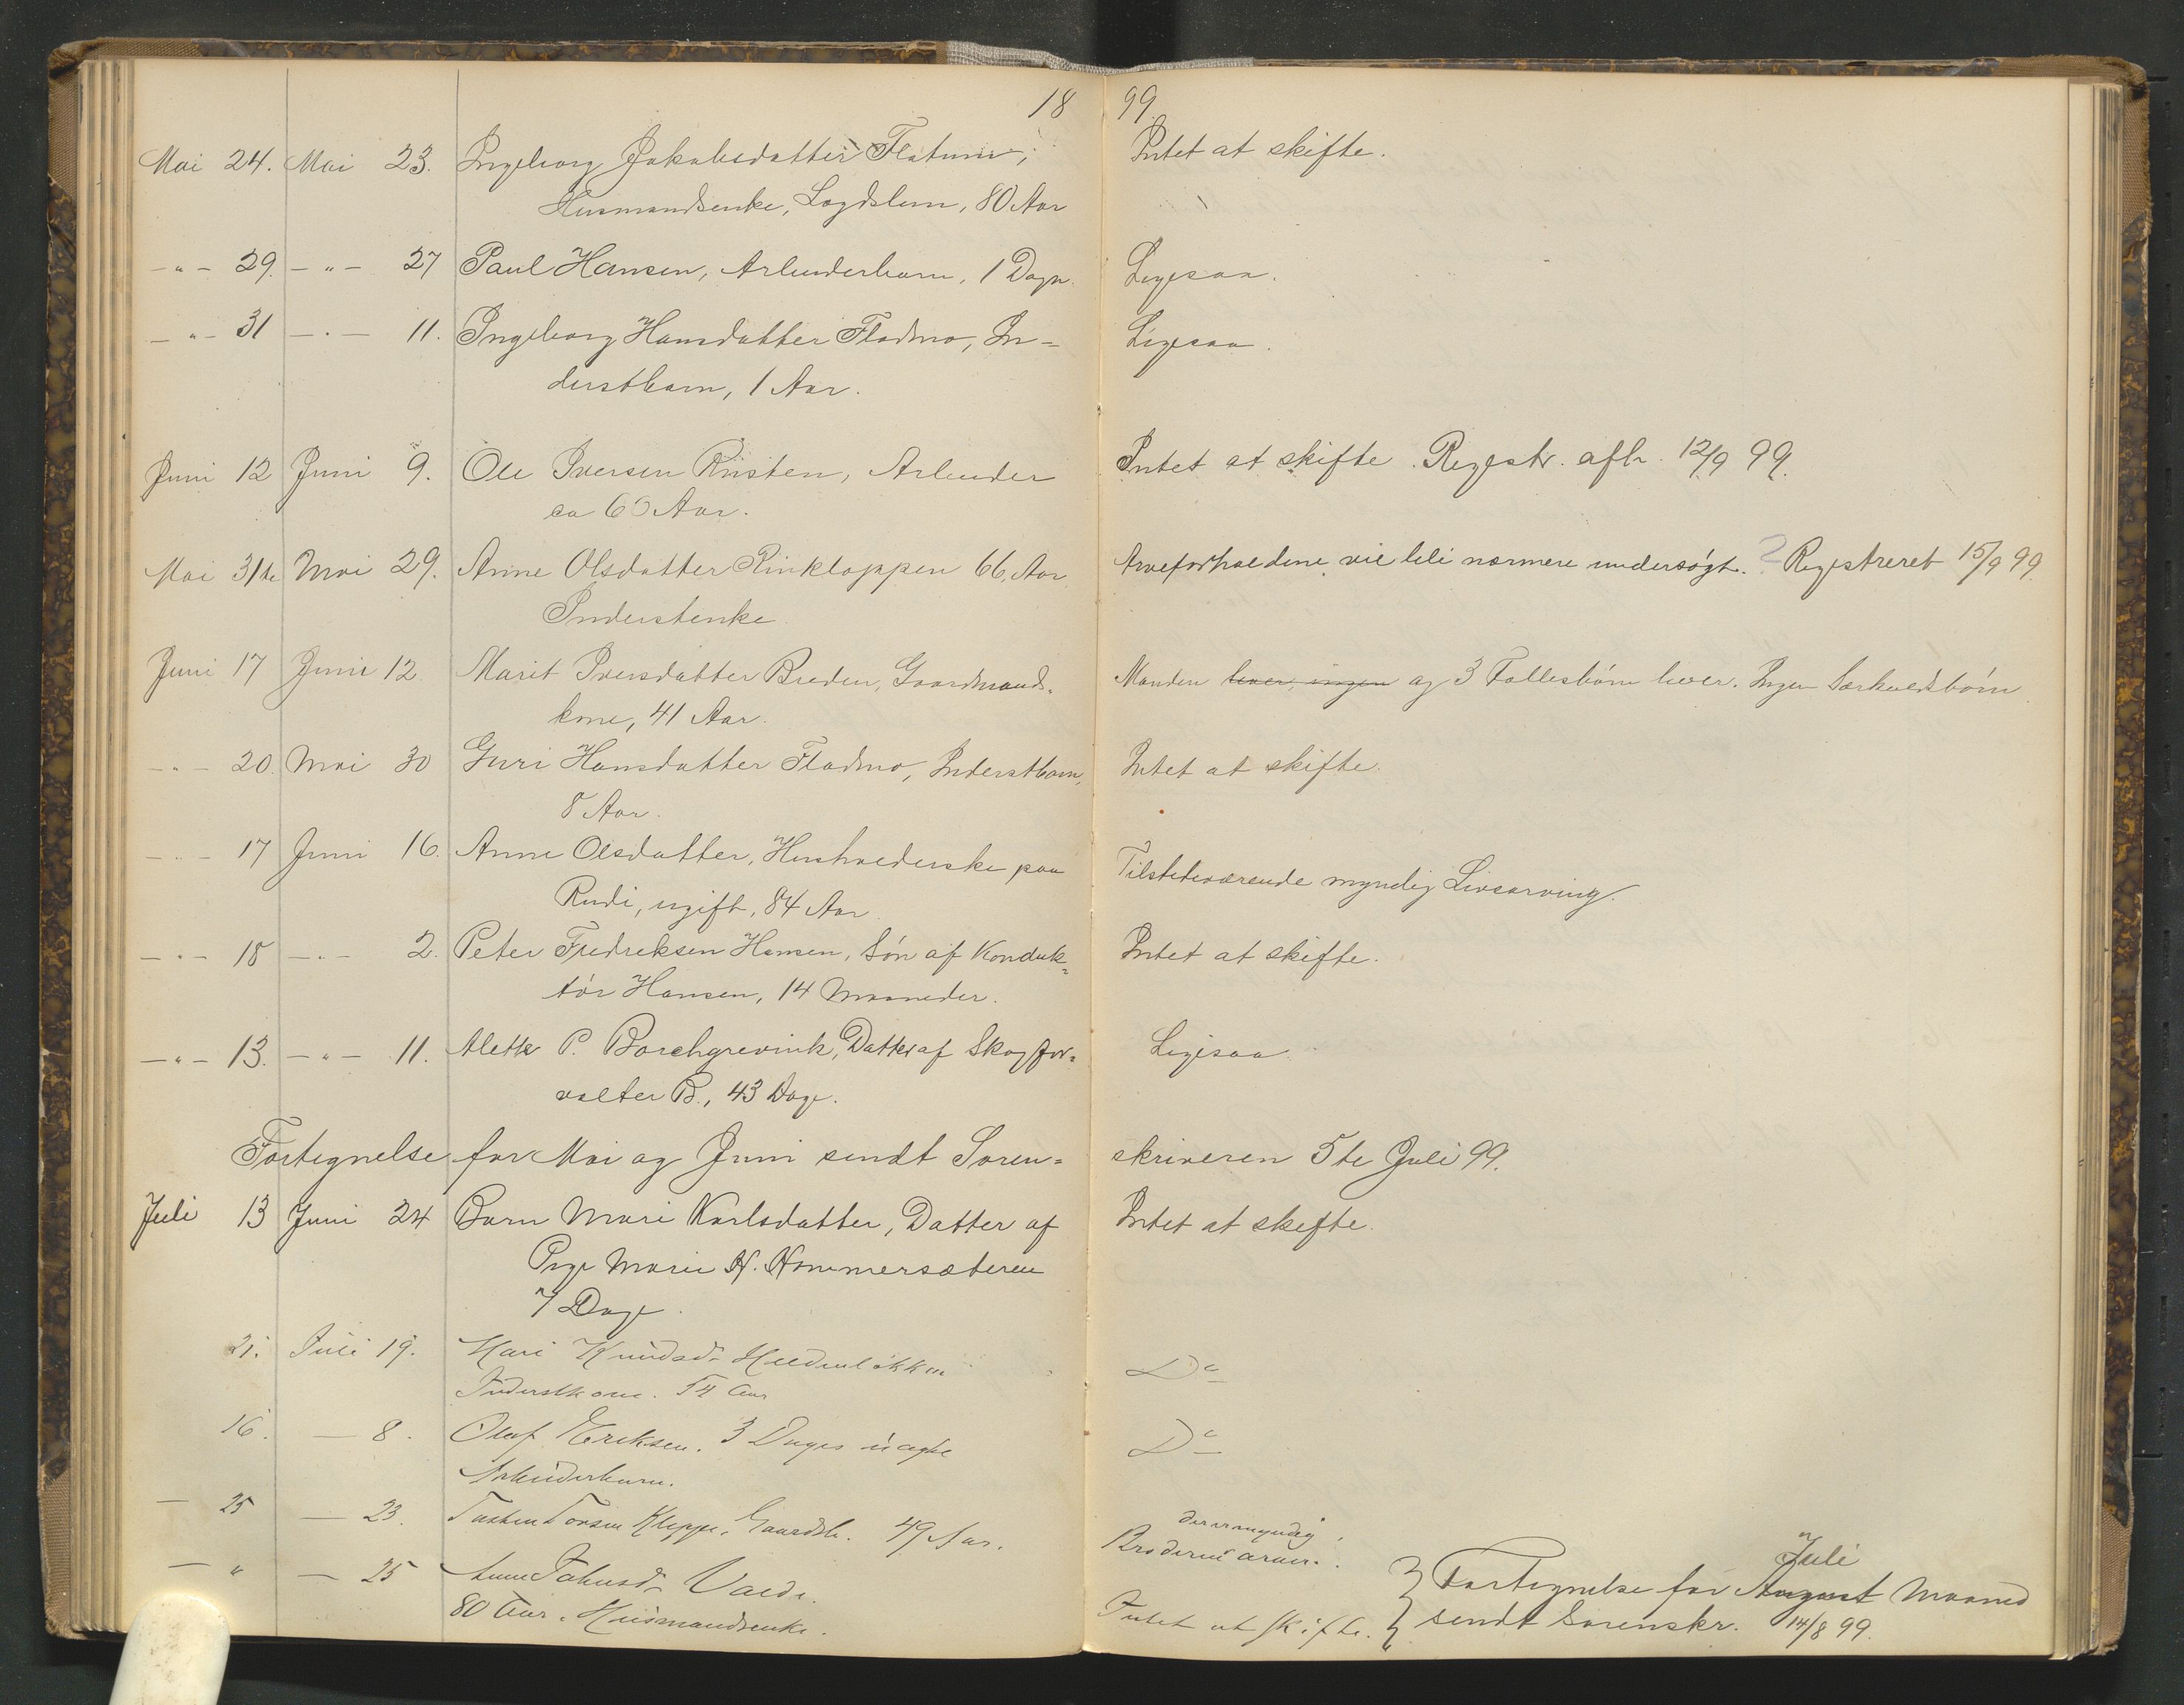 18 99
Mai 24. Mai 23. Ingeborg Jakobsdatter Flatum, Intet at skifte.
Husmandsenke, Lægdslem, 80 Aar
-"- 29. -"- 27 Paul Hansen, Arbeiderbarn, 1 Døgn. Ligesaa.
-"- 31 -"- 11. Ingeborg Hansdatter Fladmo, In= Ligesaa.
derstbarn, 1 Aar.
Juni 12 Juni 9. Ole Iversen Rusten, Arbeider Intet at skifte. Registr. afh. 12/9 99.
ca 60 Aar.
Mai 31te Mai 29. Anne Olsdatter 66 Aar Arveforholdene vil bli nærmere undersøgt. ? Registreret 15/9 99.
Inderstenke
Juni 17 Juni 12. Marit Iversdatter Breden, Gaardmands- Manden lever, ingen og 3 Fællesbørn lever. Ingen Særkuldsbørn
kone, 41 Aar.
-"- 20. Mai 30 Guri Hansdatter Fladmo, Inderstbarn, Intet at skifte.
8 Aar.
-"- 17 Juni 16. Anne Olsdatter, Husholderske paa Tilstedeværende myndig Livsarving.
Rudi, ugift, 84 Aar
-"- 18 -"- 2. Peter Fredriksen Hansen, Søn af Konduk= Intet at skifte.
tør Hansen, 14 Maaneder.
-"- 13. -"- 11. Alette P. Borchgrevink, Datter af Skogfor= Ligesaa
valter B., 43 Dage.
Fortegnelse for Mai og Juni sendt Soren= skriveren 5te Juli 99.
Juli 13 Juni 24 Barn Mari Karlsdatter, Datter af Intet at skifte.
Pige Marie H. Hammersæteren
7 Dage.
21. Juli 19. Mari Knudsd. D⁰
Inderstkone. 54 Aar
16. — 8. Olaf Eriksen. 3 Dages uægte D⁰
Arbeiderbarn.
— 25 — 23. Torsen Kleppe, Gaardbr. 49 Aar. myndig
Broderen arver.
— " — 25 Anne Johnsd. } Fortegnelse for August Juli Maaned
80 Aar. Husmandsenke. Intet at skifte. } sendt Sorenskr. 14/8 99.